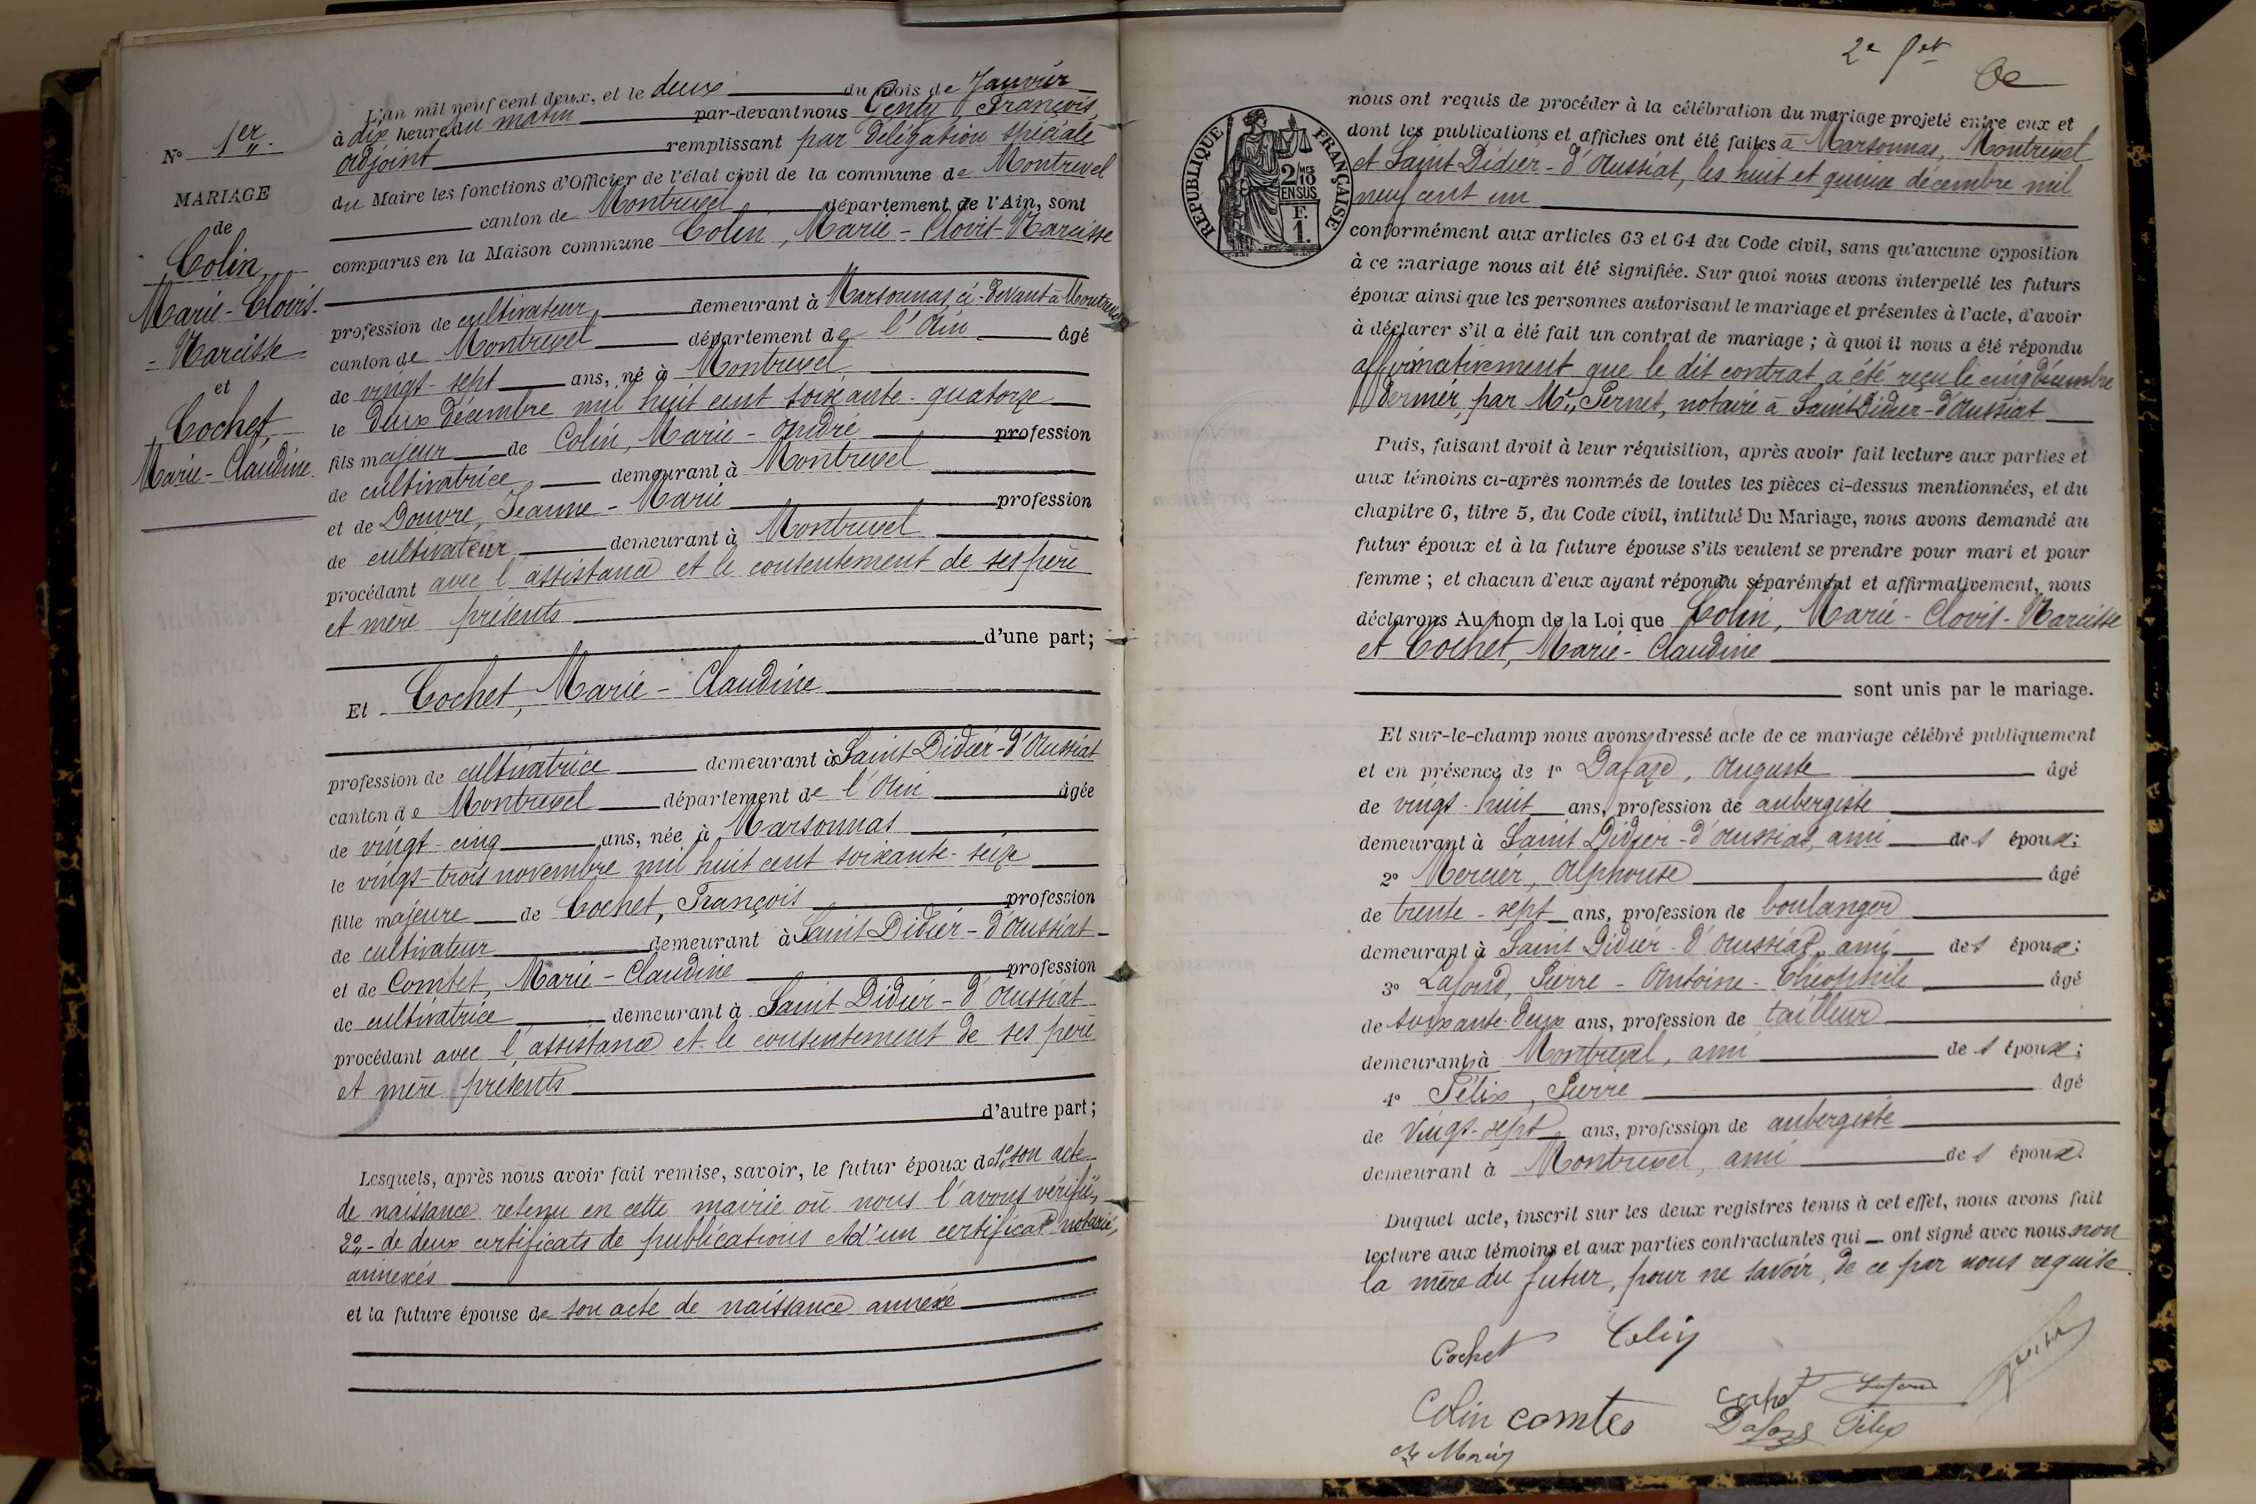 N° 1er
MARIAGE
de
Colin,
Marie-Clovis-
-Narcisse
et
Cochet,
Marie-Claudine.
L'an mil neuf cent deux, et le deux du mois de Janvier
à dix heures du matin par-devant nous Genty François,
adjoint remplissant par délégation spéciale
du Maire les fonctions d'Officier de l'état civil de la commune de Montrevel
canton de Montrevel département de l'Ain, sont
comparus en la Maison commune Colin, Marie-Clovis-Narcisse
profession de cultivateur demeurant à Marsonnas ci-devant à Montrevel
canton de Montrevel département de l'Ain âgé
de vingt-sept ans, né à Montrevel
le deux décembre mil huit cent soixante-quatorze
fils majeur de Colin, Marie-André profession
de cultivatrice demeurant à Montrevel
et de Douvre, Jeanne-Marie profession
de cultivateur demeurant à Montrevel
procédant avec l'assistance et le consentement de ses père
et mère présents
d'une part;
Et Cochet, Marie-Claudine
profession de cultivatrice demeurant à Saint Didier-d'Aussiat
canton de Montrevel département de l'Ain âgée
de vingt-cinq ans, née à Marsonnas
le vingt-trois novembre mil huit cent soixante-seize
fille majeure de Cochet, François profession
de cultivateur demeurant à Saint Didier-d'Aussiat
et de Comtet, Marie-Claudine profession
de cultivatrice demeurant à Saint Didier-d'Aussiat
procédant avec l'assistance et le consentement de ses père
et mère présents
d'autre part;
Lesquels, après nous avoir fait remise, savoir, le futur époux de 1° son acte
de naissance retenu en cette mairie où nous l'avons vérifié,
2° - de deux certificats de publications et d'un certificat notarié,
annexés
et la future épouse de son acte de naissance annexé
2e
REPUBLIQUE FRANÇAISE
2/10 EN SUS
F. 1.
nous ont requis de procéder à la célébration du mariage projeté entre eux et
dont les publications et affiches ont été faites à Marsonnas, Montrevel
et Saint Didier-d'Aussiat, les huit et quinze décembre mil
neuf cent un
conformément aux articles 63 et 64 du Code civil, sans qu'aucune opposition
à ce mariage nous ait été signifiée. Sur quoi nous avons interpellé les futurs
époux ainsi que les personnes autorisant le mariage et présentes à l'acte, d'avoir
à déclarer s'il a été fait un contrat de mariage ; à quoi il nous a été répondu
affirmativement que le dit contrat a été reçu le cinq décembre
dernier, par Me Pernet, notaire à Saint Didier-d'Aussiat
Puis, faisant droit à leur réquisition, après avoir fait lecture aux parties et
aux témoins ci-après nommés de toutes les pièces ci-dessus mentionnées, et du
chapitre 6, titre 5, du Code civil, intitulé Du Mariage, nous avons demandé au
futur époux et à la future épouse s'ils veulent se prendre pour mari et pour
femme ; et chacun d'eux ayant répondu séparément et affirmativement, nous
déclarons Au nom de la Loi que Colin, Marie-Clovis-Narcisse
et Cochet, Marie-Claudine
sont unis par le mariage.
Et sur-le-champ nous avons dressé acte de ce mariage célébré publiquement
et en présence de 1° Dafaze, Auguste âgé
de vingt-huit ans, profession de aubergiste
demeurant à Saint Didier-d'Aussiat, ami des époux;
2° Mercier, Alphonse âgé
de trente-sept ans, profession de boulanger
demeurant à Saint Didier-d'Aussiat, ami des époux;
3° Lafond, Pierre-Antoine-Théophile âgé
de soixante-deux ans, profession de tailleur
demeurant à Montrevel, ami des époux;
4° Félix, Pierre âgé
de vingt-sept ans, profession de aubergiste
demeurant à Montrevel, ami des époux.
Duquel acte, inscrit sur les deux registres tenus à cet effet, nous avons fait
lecture aux témoins et aux parties contractantes qui ont signé avec nous non
la mère du futur, pour ne savoir, de ce par nous requise.
Cochet Colin
Colin comtes Cochet Lafond
Dafaze Félix